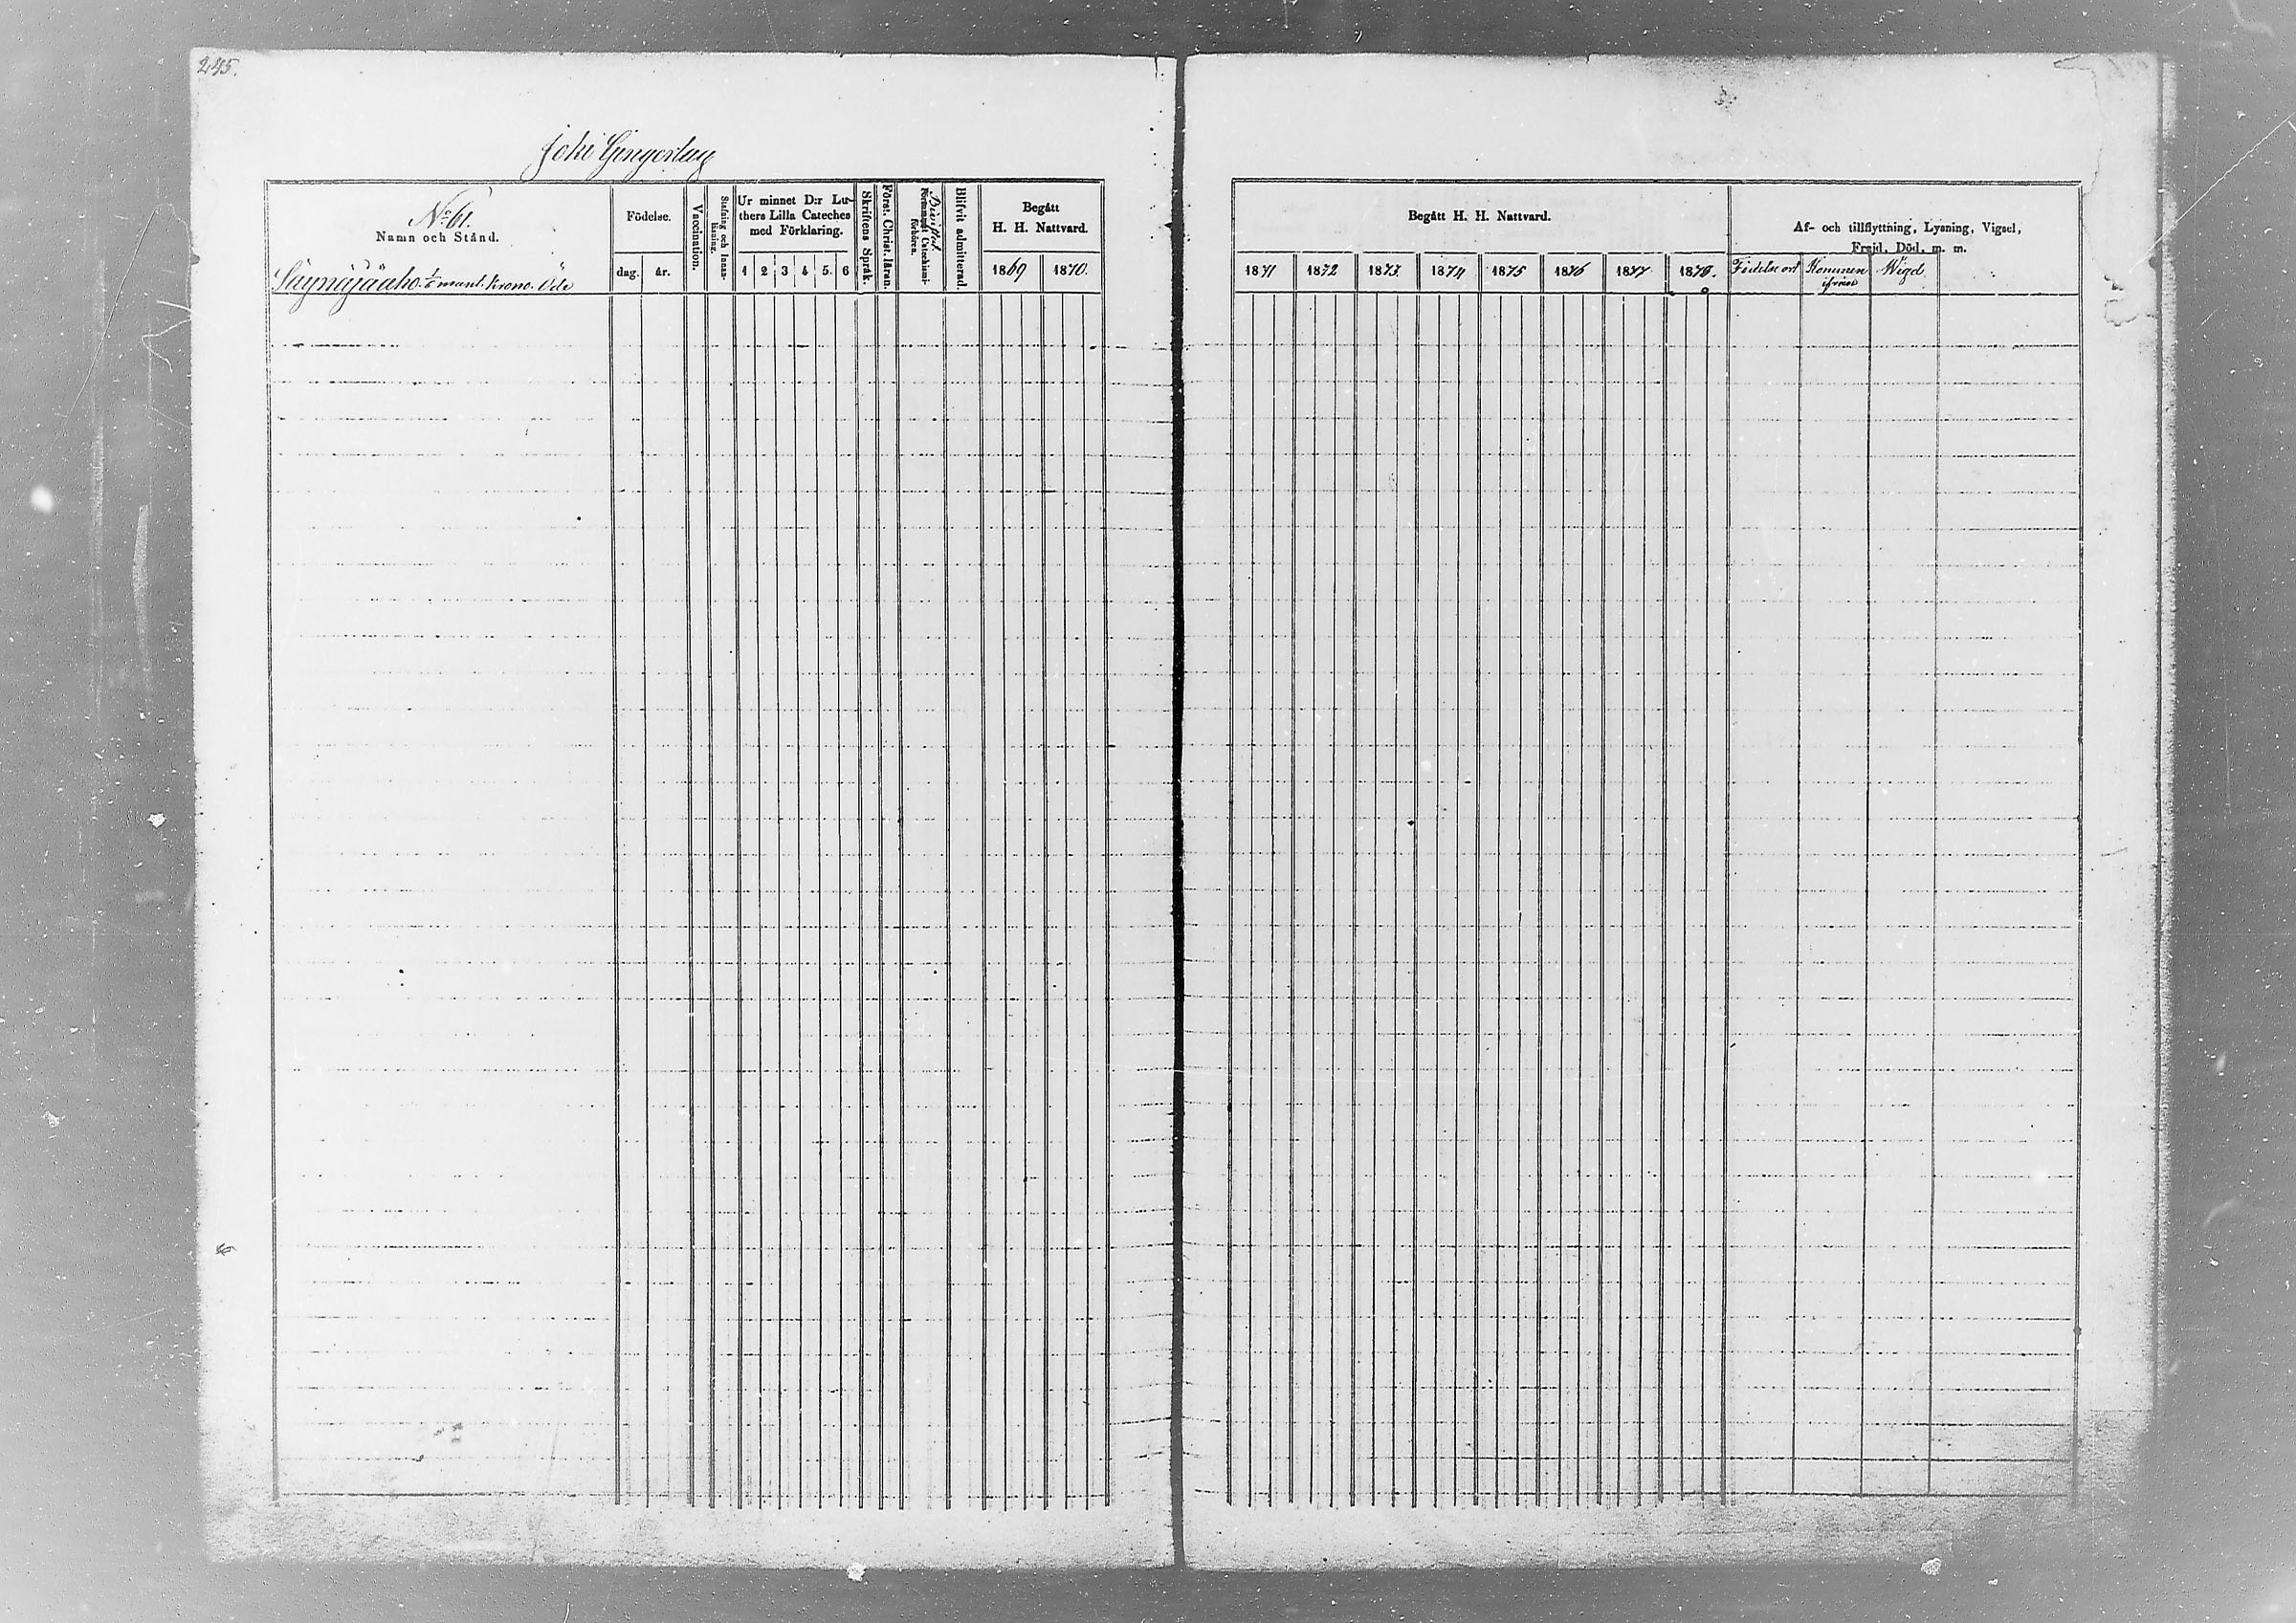 245.
Joki Gingerlag
No 61.
Namn och Stånd.
Säynäjäaho. 1/6 mant. krono. Öde
Födelse.
dag. år.
Vaccination.
Stafning och Innan-
läsning.
Ur minnet D:r Lu-
thers Lilla Cateches
med Förklaring.
1 2 3 4 5. 6
Skriftens Språk.
Förstt. Christ. läran.
Bivistat
Catechismi-
förhören.
Blifvit admitterad.
Begått
H. H. Nattvard.
1869 1870.
Begått H. H. Nattvard.
1871 1872 1873. 1874 1875 1876 1877 1878.
Af- och tillflyttning, Lysning, Vigsel,
Frejd, Död, m. m.
Födelse ort
Kommen
ifrån
Wigd